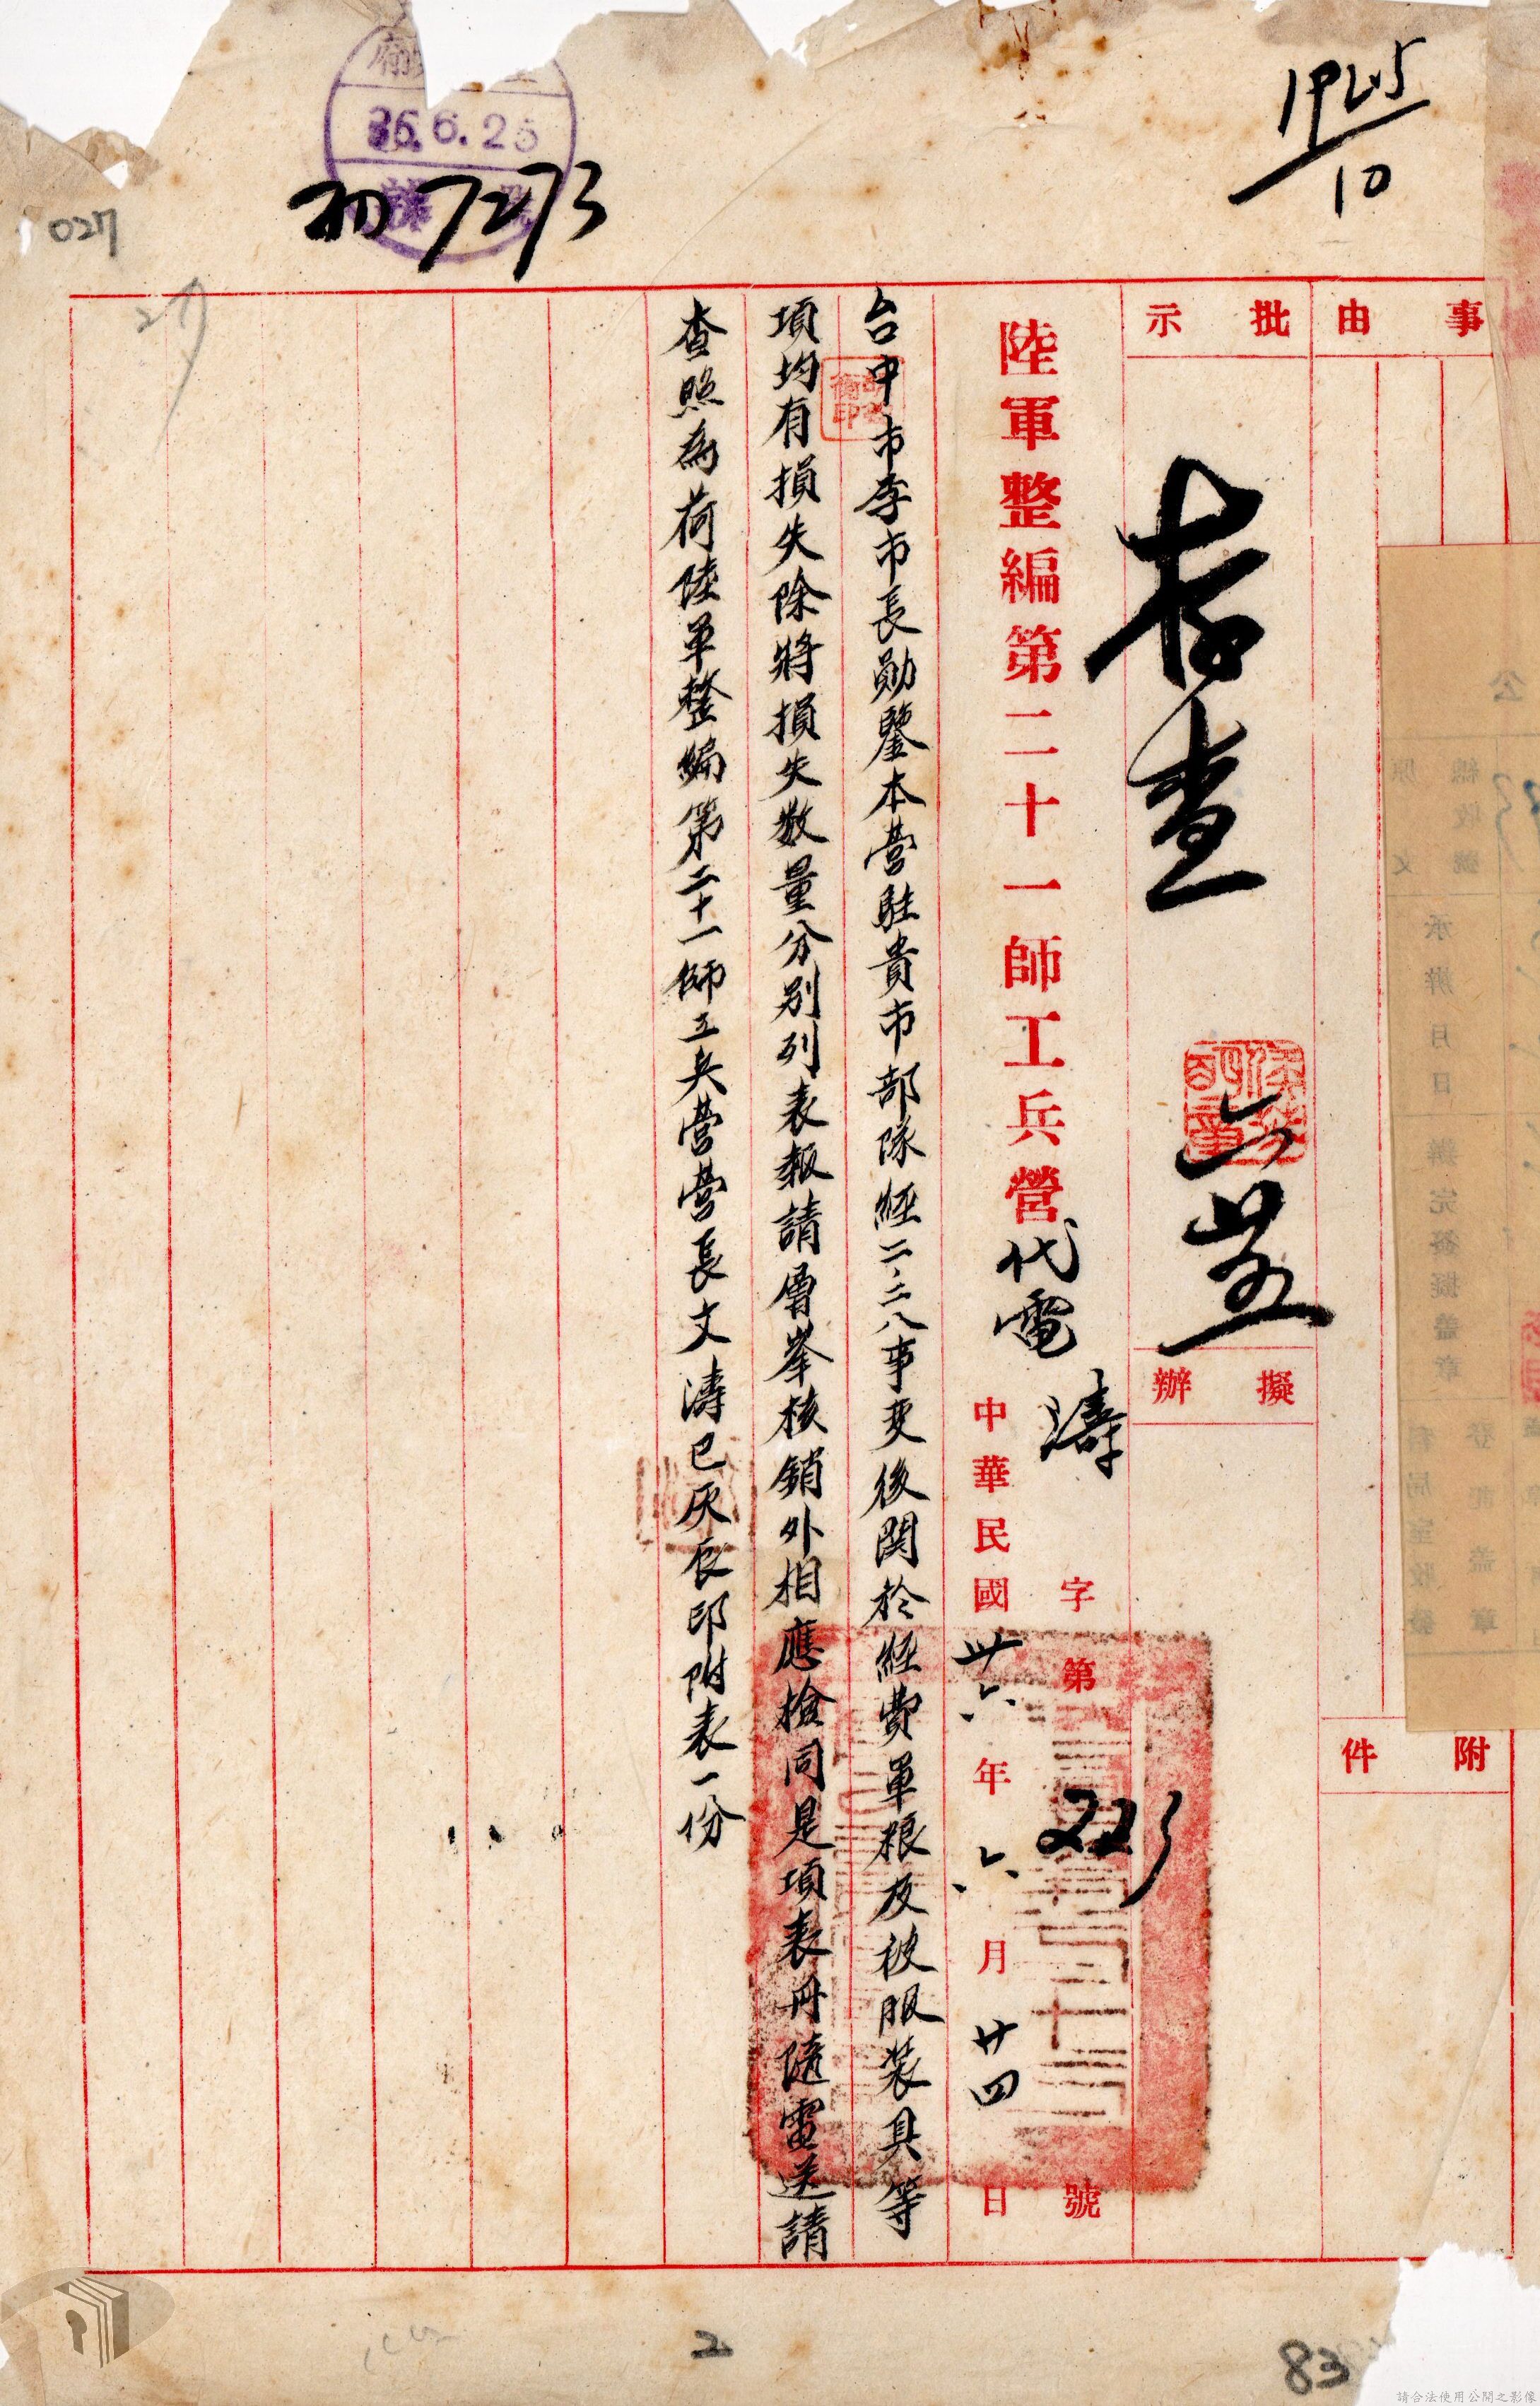 1925
10
36.6.25
7273
027
27
事由
批示
擬辦
附件
存查
六
陸軍整編第二十一師工兵營代電
濤字第223號
中華民國卅六年六月廿四日
台中市李市長勛鑒本營駐貴市部隊經二、二八事变後関於經費軍粮及被服裝具等
項均有損失除將損失数量分别列表報請層峯核銷外相應檢同是項表冊隨電送請
查照為荷陸軍整編第二十一師工兵營營長文濤巳灰辰印附表一份
2
83
請合法使用公開之影像